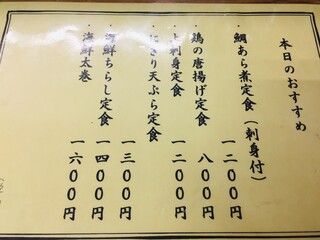 本日のおすすめ
・鯛あら煮定食(刺身付) 一二〇〇円
・鶏の唐揚げ定食 八〇〇円
・上刺身定食 一二〇〇円
・にぎり天ぷら定食 一三〇〇円
・海鮮ちらし定食 一四〇〇円
・海鮮太巻 一六〇〇円